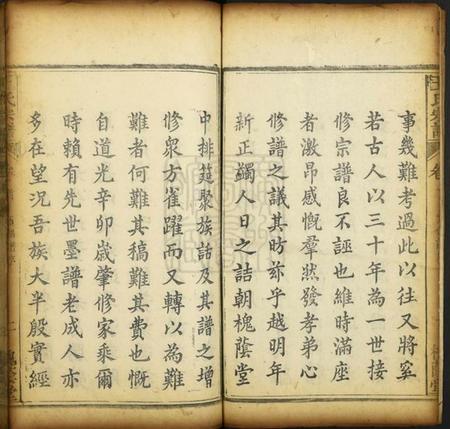 事幾難考過此以往又將奚
若古人以三十年為一世接
修宗譜良不誣也維時滿座
者激昂感慨羣狀發孝弟心
修譜之議其昉茲乎越明年
新正蠲人日之詰朝槐蔭堂
中排筵聚族話及其譜之增
修衆方雀躍而又轉以為難
難者何難其稿難其費也慨
自道光辛卯歲肇修家乘爾
時賴有先世墨譜老成人亦
多在望况吾族大半殷實經